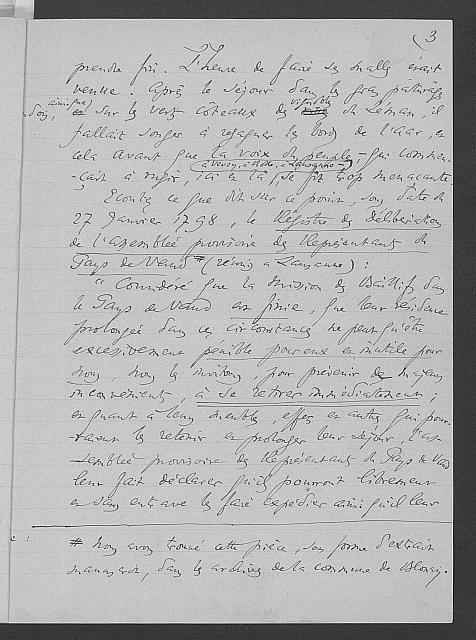 (3
prendre fin. L'heure de faire ses malles était
venue. Après le séjour dans les gras pâturages
d'Oex, ainsi que sur les verts côteaux du vignoble du Léman, il
fallait songer à regagner les bords de l'Aar, et
cela avant que la voix du peuple – qui commen-
(à Vevey, à Rolle, à Lausanne –)
-çait à mugir, ici et là, se fît trop menaçante.
Ecoutez ce que dit sur ce point, sous date du
27 Janvier 1798, le Régistre des Délibérations
de l'Assemblée provisoire des Représentants du
Pays de Vaud # (réunis à Lausanne) :
" Considéré que la mission des Baillifs dans
le Pays de Vaud est finie, que leur résidence
prolongée dans ces circonstances ne peut qu'être
excessivement pénible pour eux et inutile pour
nous, nous les invitons, pour prévenir des majeurs
inconvénients, à se retirer immédiatement ;
et quant à leurs meubles, effets et autres qui pour-
-raient les retenir et prolonger leur séjour, l'As-
semblée provisoire des Représentants du Pays de Vaud
leur fait déclarer qu'ils pourront librement
et sans entrave les faire expédier ainsi qu'il leur
# Nous avons trouvé cette pièce, sous forme d'extrait
manuscrit, dans les archives de la commune de Blonay.